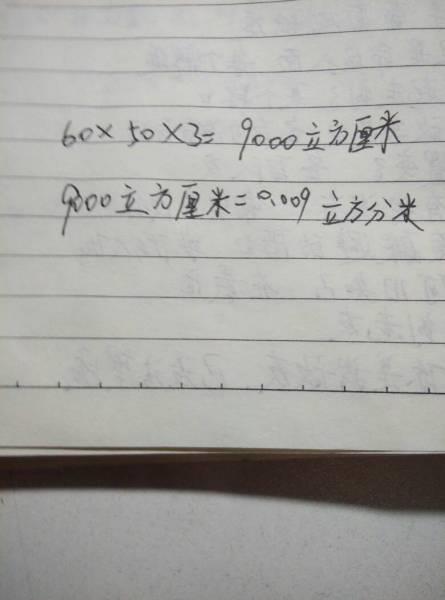 60×50×3=9000立方厘米
9000立方厘米=0.009立方分米